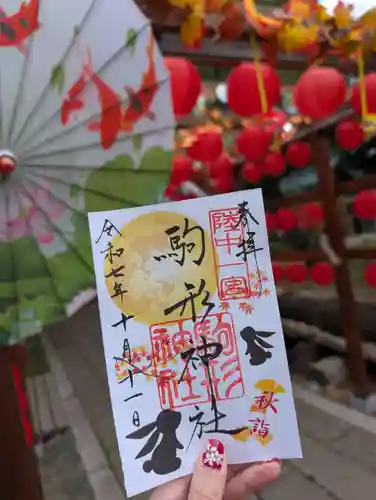 奉拝
陸中
一宮
駒形神社
駒形
神社
令和七年十月十一日
秋詣